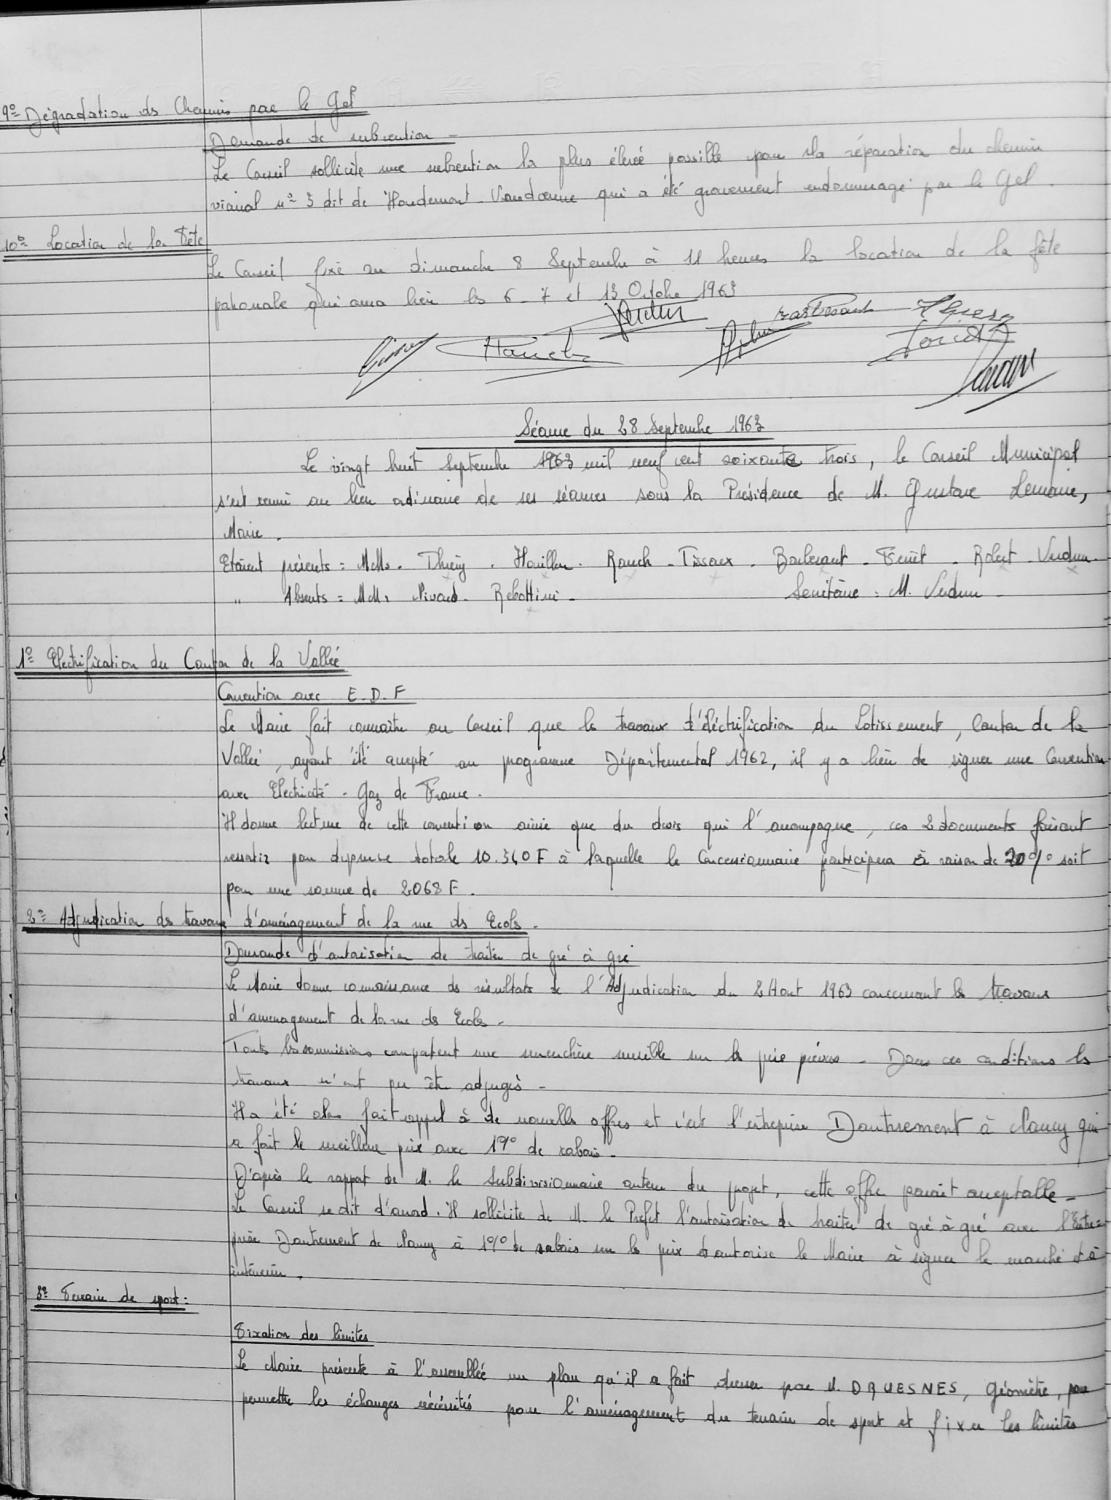 9º Dégradation des Chemins par le Gel
Demande de subvention -
Le Conseil sollicite une subvention la plus élevée possible pour la réparation du chemin
vicinal nº 3 dit de Houdemont - Vandoeuvre qui a été gravement endommagé par le Gel.
10º Location de la Fête
Le Conseil fixe au dimanche 8 Septembre à 11 heures la location de la fête
patronale qui aura lieu les 6 - 7 et 13 Octobre 1963
Séance du 28 Septembre 1963
Le vingt huit Septembre 1963 mil neuf cent soixante trois, le Conseil Municipal
s'est réuni au lieu ordinaire de ses séances sous la Présidence de M. Gustave Lemoine,
Maire.
Etaient présents = MMs. Thiéry . Houillon . Rauch - Tissaux . Barbezant - Ferriet . Robert - Verdun.
" Absents = MMs Nivard - Rebottini - Secrétaire : M. Verdun -
1º Electrification du Canton de la Vallée
Convention avec E.D.F
Le Maire fait connaître au Conseil que les travaux d'électrification du Lotissement, Canton de la
Vallée, ayant été accepté au programme Départemental 1962, il y a lieu de signer une Convention
avec Electricité - Gaz de France.
Il donne lecture de cette convention ainsi que du devis qui l'accompagne, ces 2 documents faisant
ressortir pour dépense totale 10.340 F à laquelle le Concessionnaire participera à raison de 20% soit
pour une somme de 2068 F.
2º Adjudication des travaux d'aménagement de la rue des Ecoles.
Demande d'autorisation de traiter de gré à gré
Le Maire donne connaissance des résultats de l'Adjudication du 2 Aout 1963 concernant les travaux
d'aménagement de la rue des Ecoles.
Toutes les soumissions comportent une surenchère sensible sur les prix prévus - Dans ces conditions les
travaux n'ont pu être adjugés -
Il a été alors fait appel à de nouvelles offres et c'est l'entreprise Dautrement à Nancy qui
a fait le meilleur prix avec 1% de rabais -
D'après le rapport de M. le Subdivisionnaire auteur du projet, cette offre parait acceptable -
Le Conseil se dit d'accord. Il sollicite de M. le Préfet l'autorisation de traiter de gré à gré avec l'Entre
prise Dautrement de Nancy à 1% de rabais sur les prix et autorise le Maire à signer le marché et à
intervenir.
3º Terrain de sport :
Fixation des limites
Le Maire présente à l'assemblée un plan qu'il a fait dresser par M. DAUESNES, Géomètre, pour
permettre les échanges nécessités pour l'aménagement du terrain de sport et fixer les limites